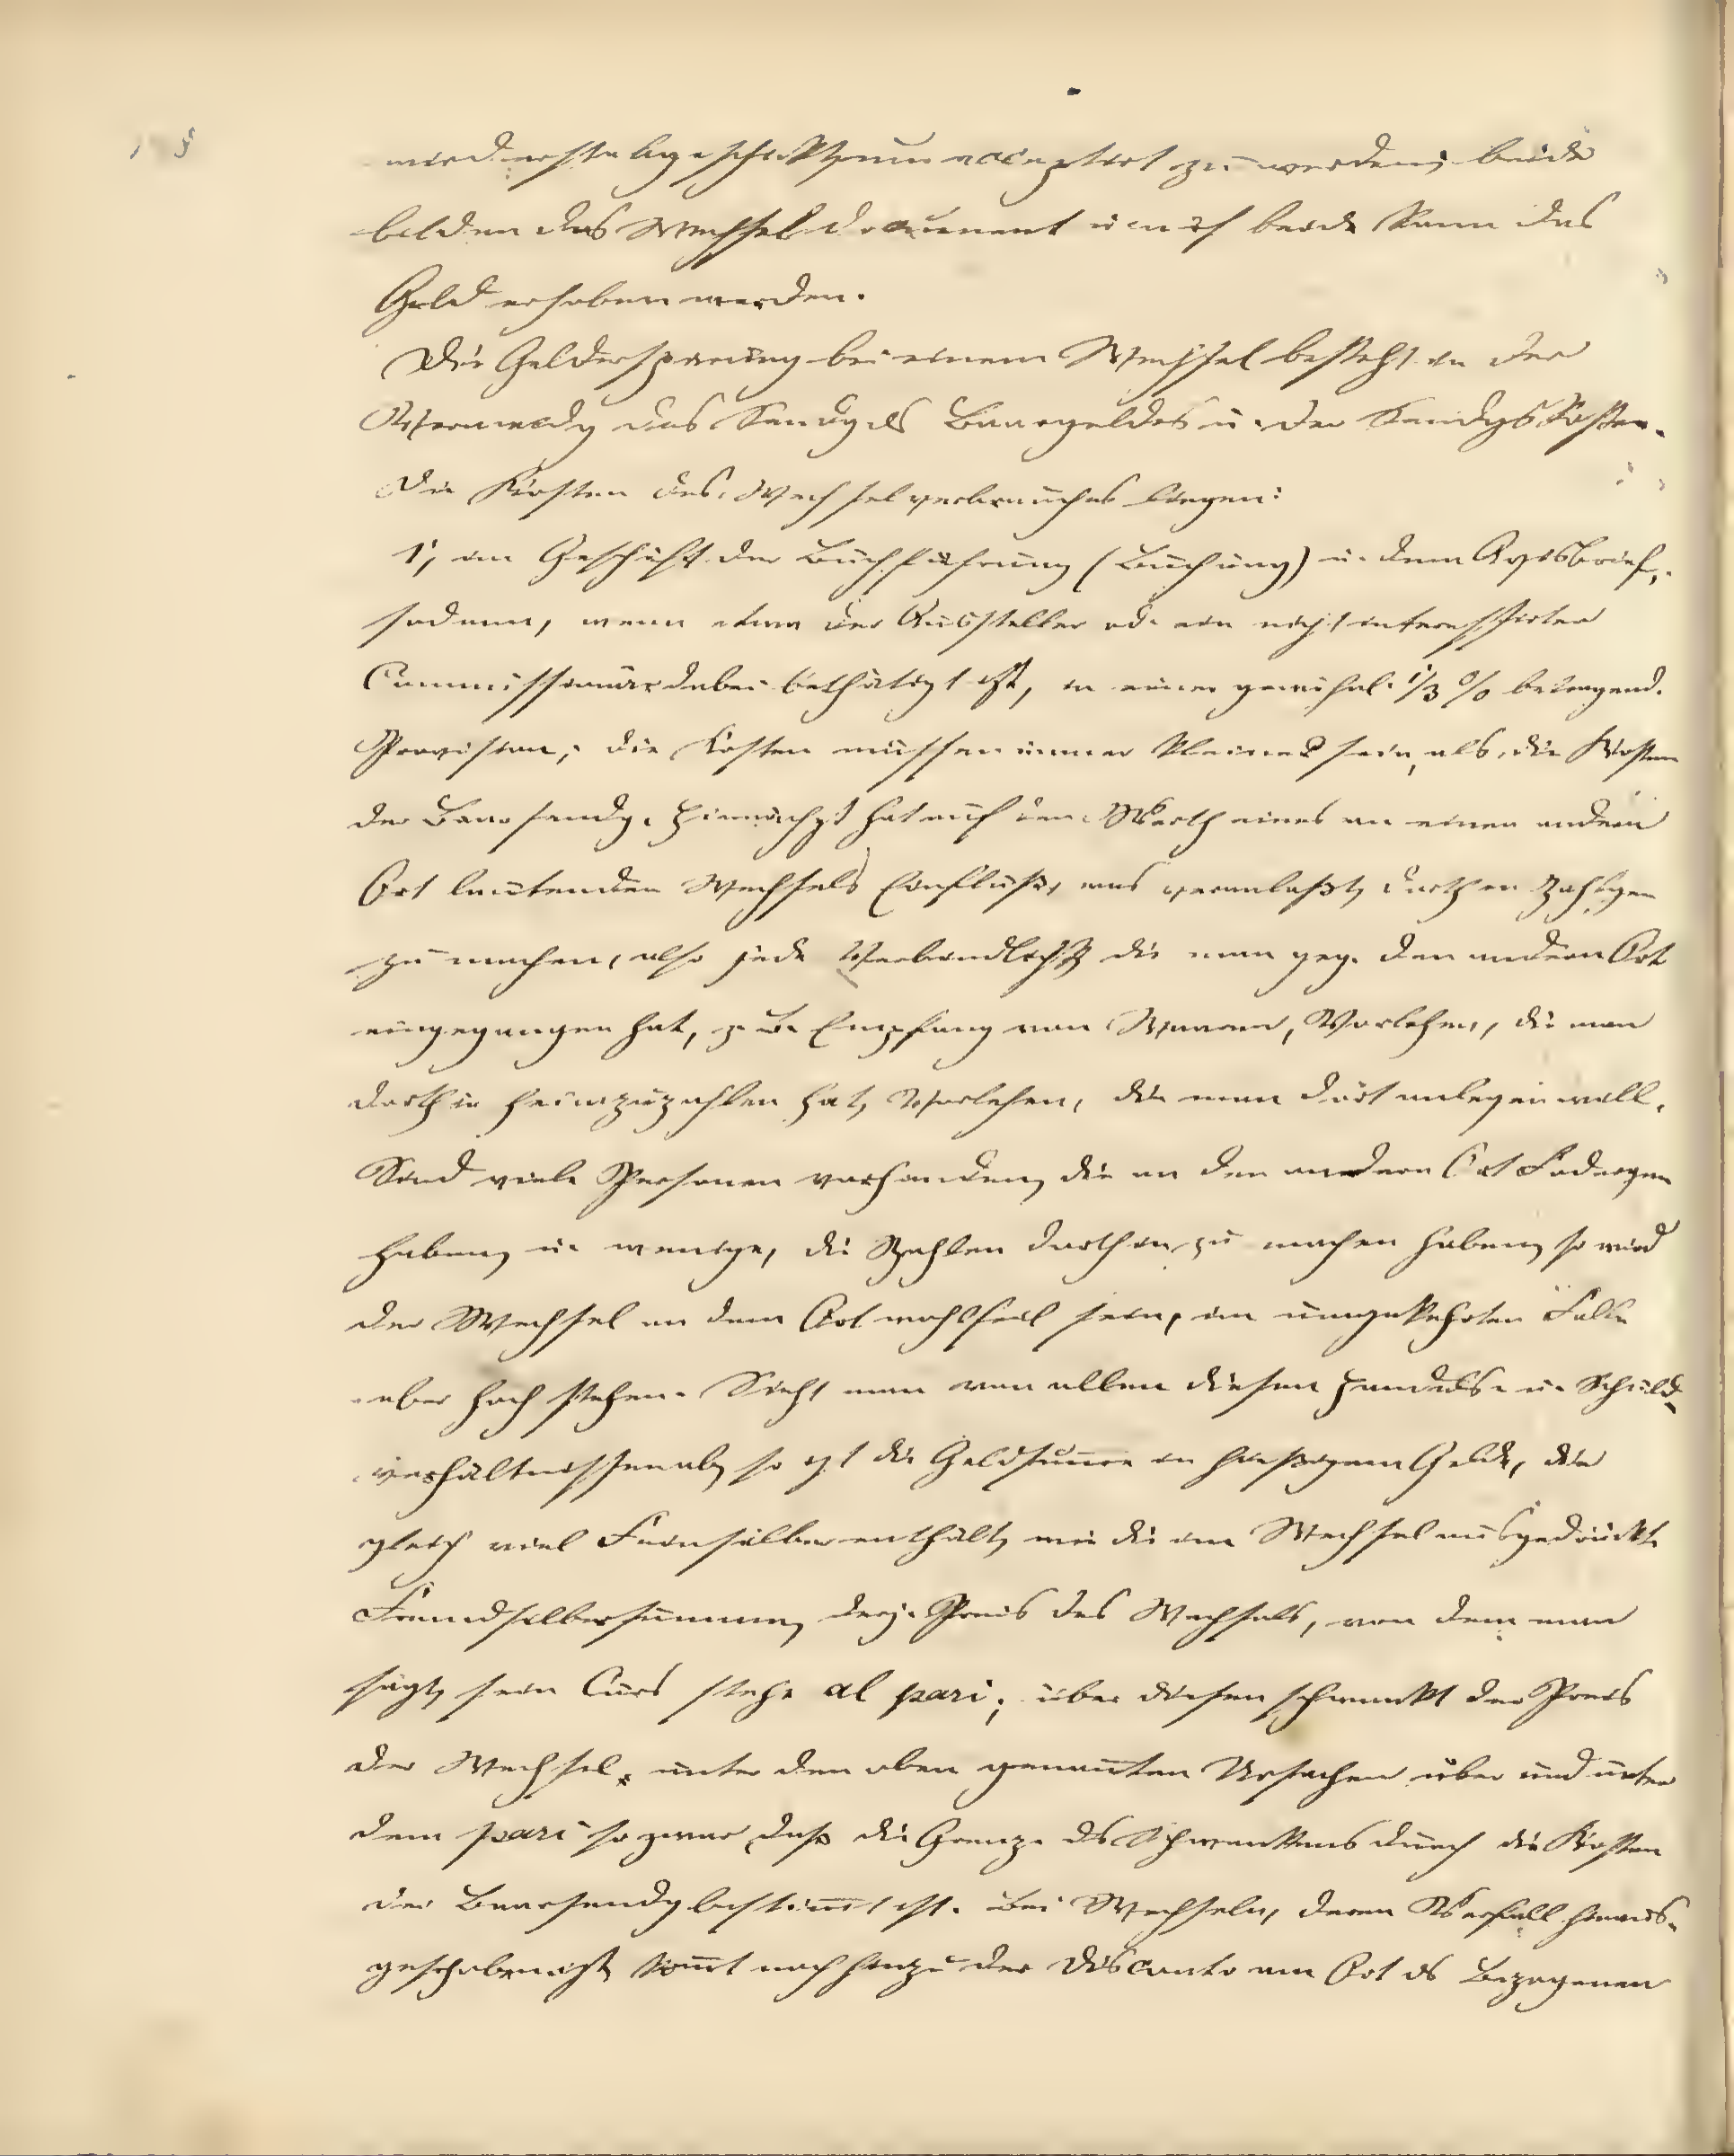 wird erst abgeschickt, um acceptirt zu werden; beide
bilden das Wechseldocument u. auf beide kann das
Geld erhoben werden.
Die Geldersparung bei einem Wechsel besteht in der
Vermeidg des Sendgs Baargeldes u. der Sendgskosten.
Die Kosten des Wechselverbrauches liegen:
1, im Geschäft der Buchführung (Buchung) u. dem Avisbrief,
sodann, wenn etwa der Aussteller od. ein nicht interessirter
Commissionär dabei bethätigt ist, in einer gewöhnl. 1/3 % betragend.
Provision; die Kosten müssen immer kleiner sein, als die Kosten
der Baarsendg. Hienächst hat auf den Werth eines an einen andern
Ort lautenden Wechsels Einfluß, was veranlaßt, dorthin Zahlgen
zu machen, also jede Verbindlichkt die man geg. den andern Ort
eingegangen hat, z. B. Empfang von Waaren, Vorlehen, die man
dorthin heimzuzahlen hat, Vorlehen, die man dort anlegen will.
Sind viele Personen vorhanden, die an den andern Ort Fodergen
haben, u. wenige, die Zahlen dorthin zu machen haben, so wird
der Wechsel an dem Ort wohlfeil sein, im umgekehrten Falle
aber hoch stehen. Sieht man von allen diesen Handels- u. Schuld-
verhältnissen ab, so ist die Geldsumme in hiesigem Gelde, die
gleich viel Feinsilber enthält, wie die im Wechsel ausgedrückte
Fremdsilbersumme, derj. Preis des Wechsels, von dem man
sagt, sein Curs stehe al pari; über diesen schwankt der Preis
der Wechsel, unter den oben genannten Ursachen über und unter
dem pari so zwar, daß die Grenze ds Schwankens durch die Kosten
der Baarsendg bestimmt ist. Bei Wechseln, deren Verfall hinaus-
geschoben ist, kommt noch hinzu der Disconto am Ort ds Bezogenen